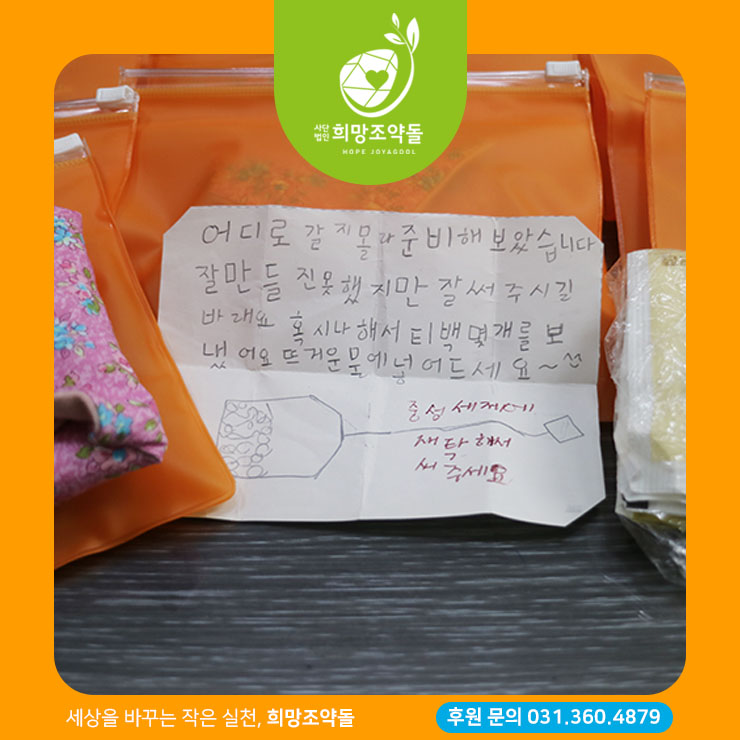 사단
법인 희망조약돌
HOPE JOYAGDOL
어디로 갈지몰라준비해보았습니다
잘만들진못했지만잘써주시길
바래요 혹시나해서티백몇개를보
냈어요뜨거운물에넣어드세요~^^
중성세제에
세탁해서
써주세요
세상을 바꾸는 작은 실천, 희망조약돌
후원 문의 031.360.4879